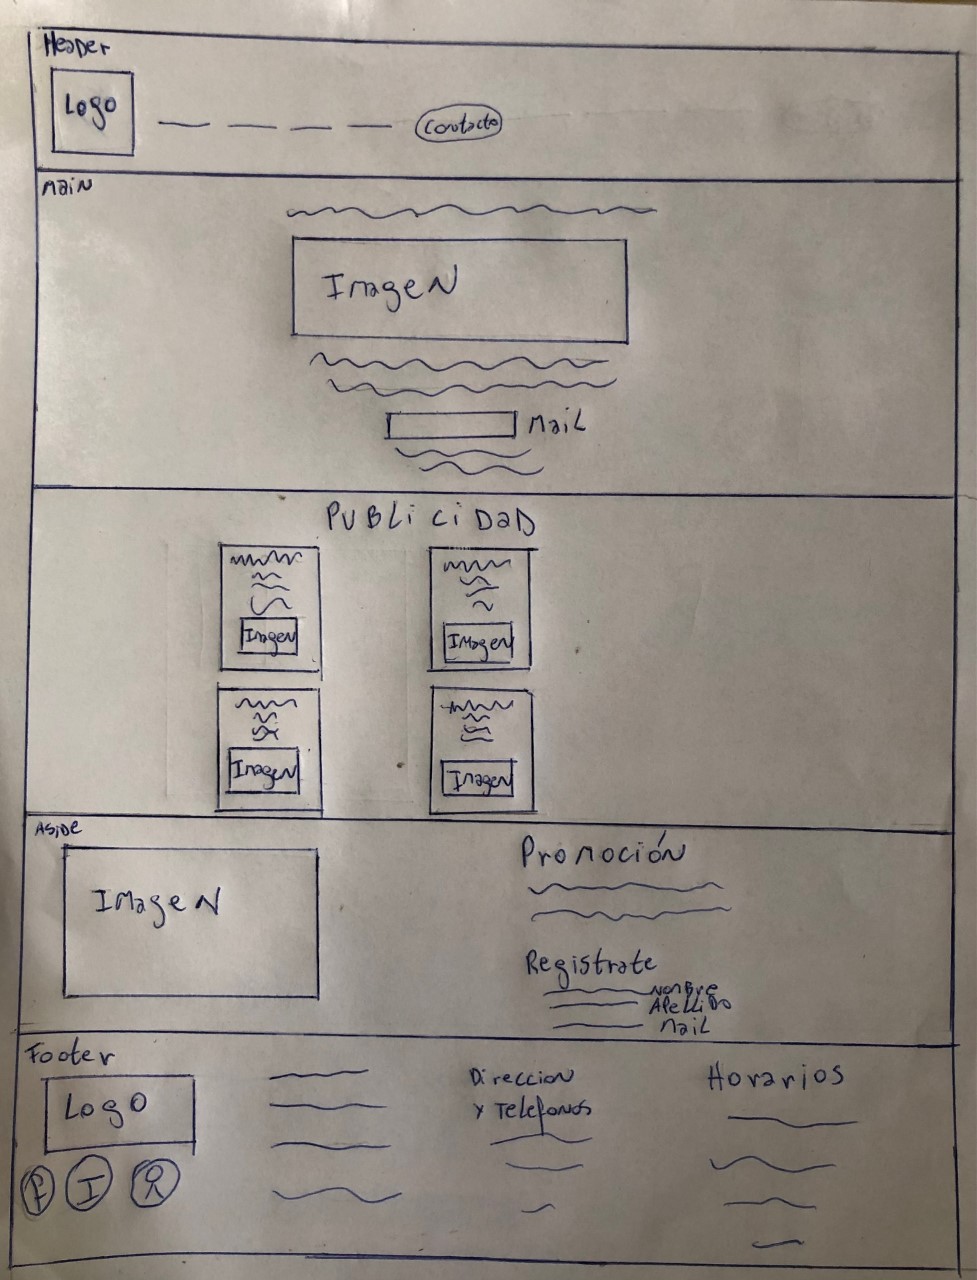 Header
Logo
Contacto
Main
Imagen
Mail
PUBLICIDAD
Imagen
Imagen
Imagen
Imagen
Aside
Imagen
Promoción
Registrate
Nombre
Apellido
Mail
Footer
Logo
F I
Direccion
y Telefonos
Horarios